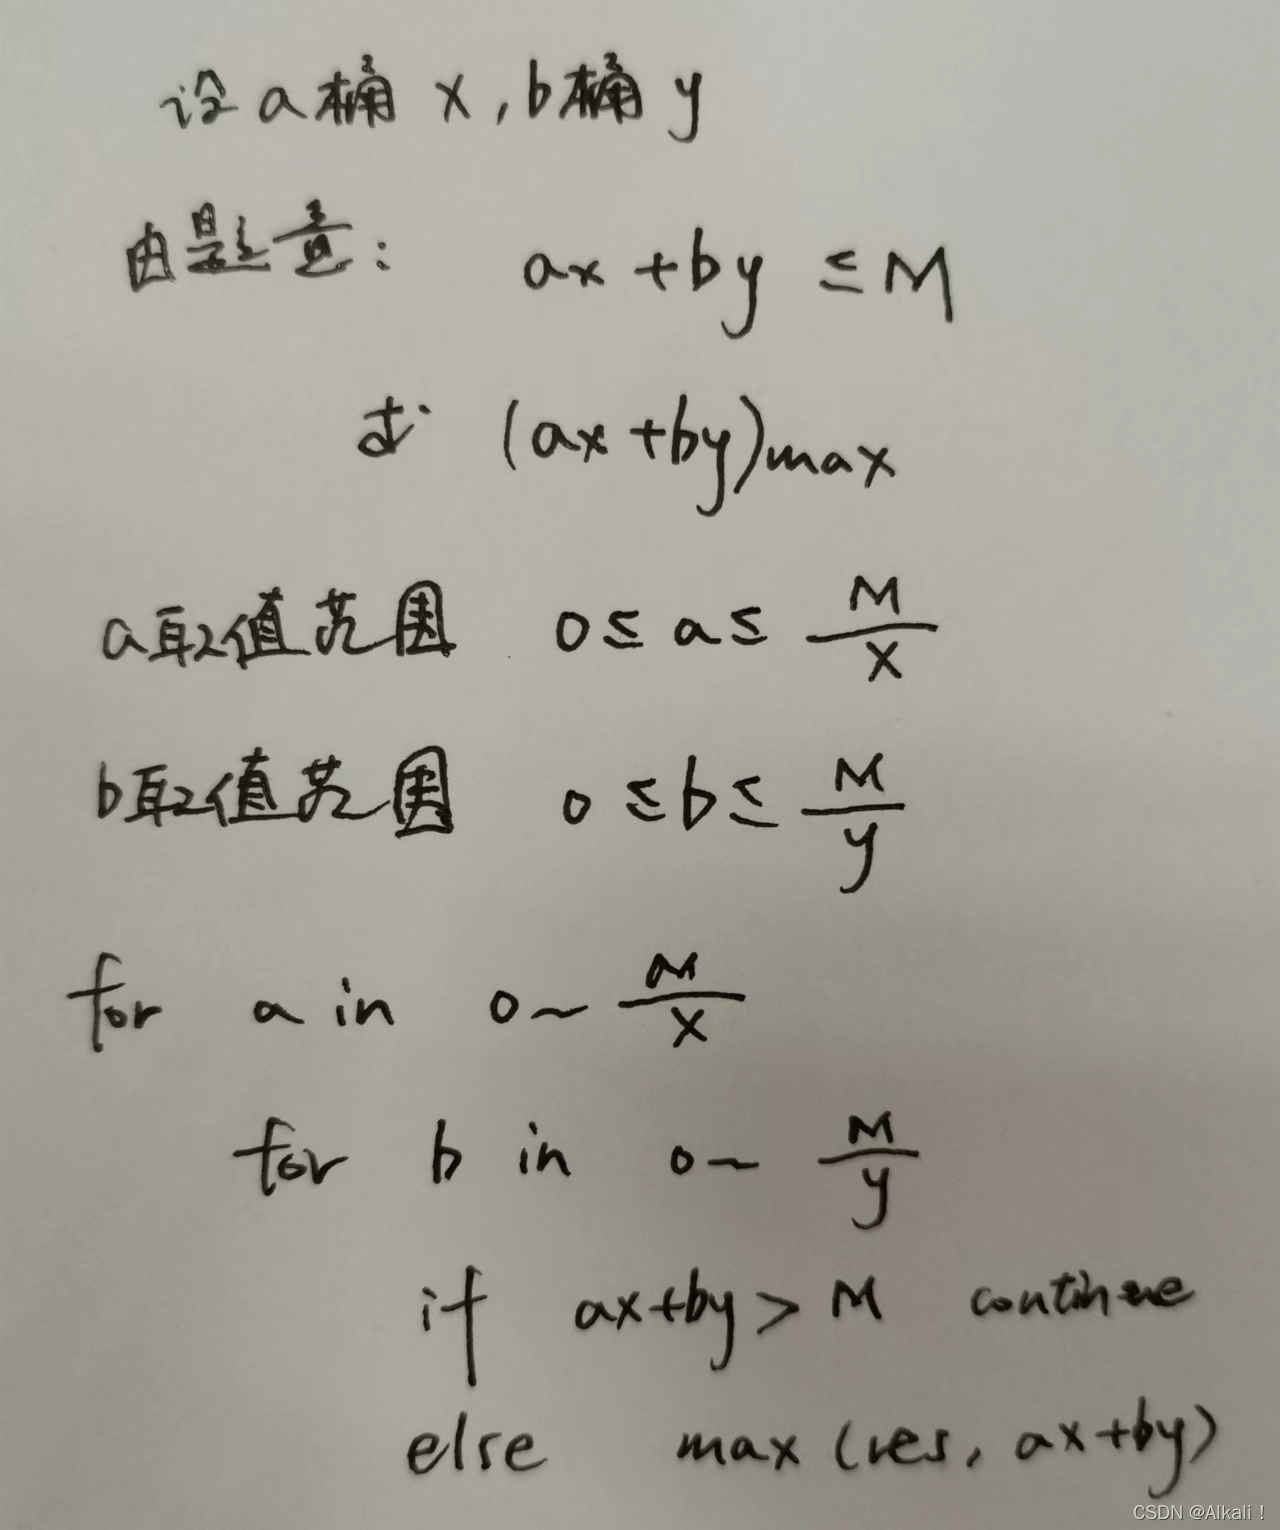 设a桶 x,b桶 y
由题意: ax+by ≤M
求 (ax+by)max
a取值范围 0≤a≤ M/x
b取值范围 0≤b≤ M/y
for a in 0~ M/x
for b in 0~ M/y
if ax+by> M continue
else max (res, ax+by)
CSDN @Alkali!